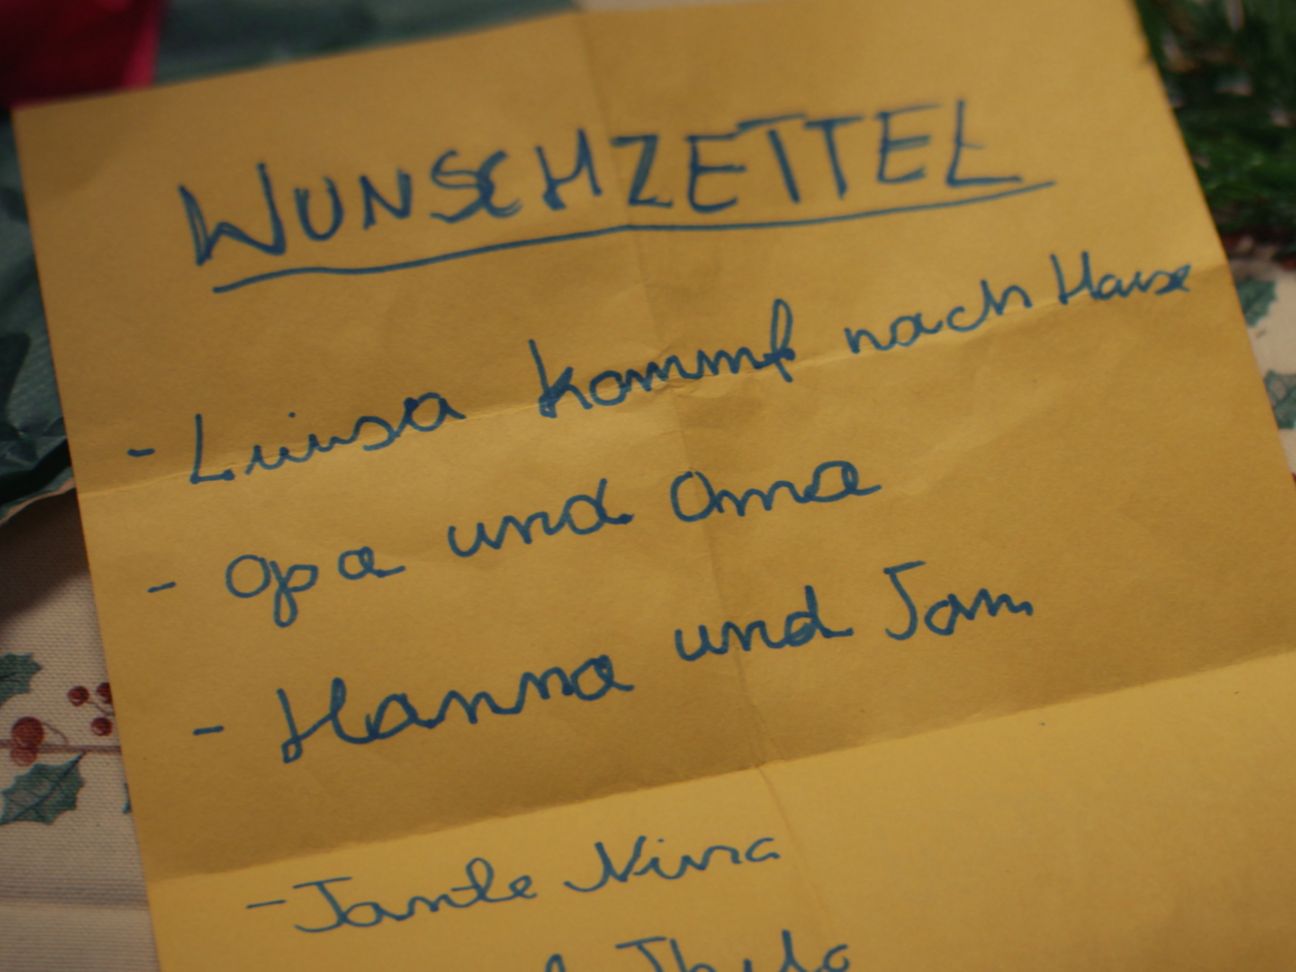 WUNSCHZETTEL
- Luisa kommt nach Hause
- Opa und Oma
- Hanna und Jan
- Tante Nina